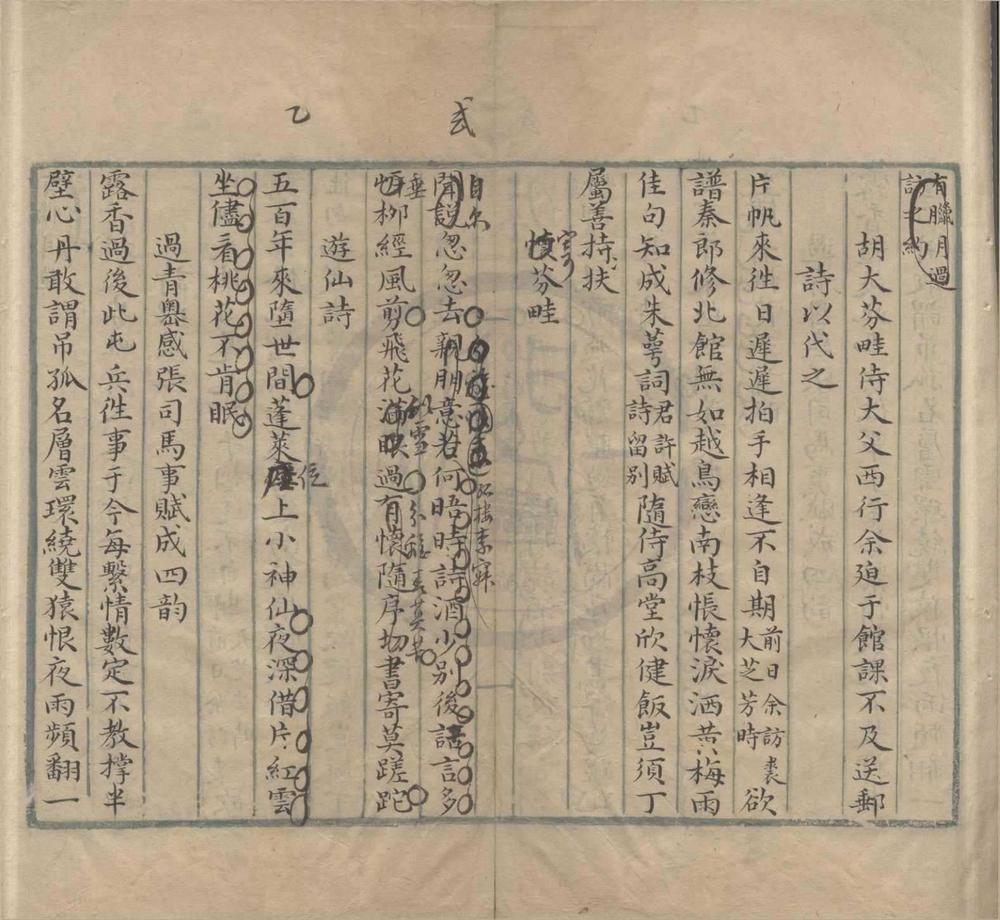 弍
乙
有臘月過
訪之約
胡大芬畦侍大父西行余迫于館課不及送郵
詩以代之
片帆來徃日遲遲拍手相逢不自期前日余訪裘大芝芳時欲
譜秦郎修北館無如越鳥戀南枝悵懷淚洒黃梅雨
佳句知成朱萼詞君許賦詩留別隨侍高堂欣健飯豈須丁
屬善持扶
寄
懷芬畦
自尔
聞説忽忽去親朋意若何晤時詩酒少別後話言多
垂
柳經風剪飛花滿眼過有懷隨序物書寄莫蹉跎
似雪
遊仙詩
五百年來墮世間蓬萊座上小神仙夜深借片紅雲
位
坐儘看桃花不肯眠
過青嶴感張司馬事賦成四韵
露香過後此屯兵徃事于今每繫情數定不教撑半
壁心丹敢謂吊孤名層雲環繞雙猿恨夜雨頻翻一